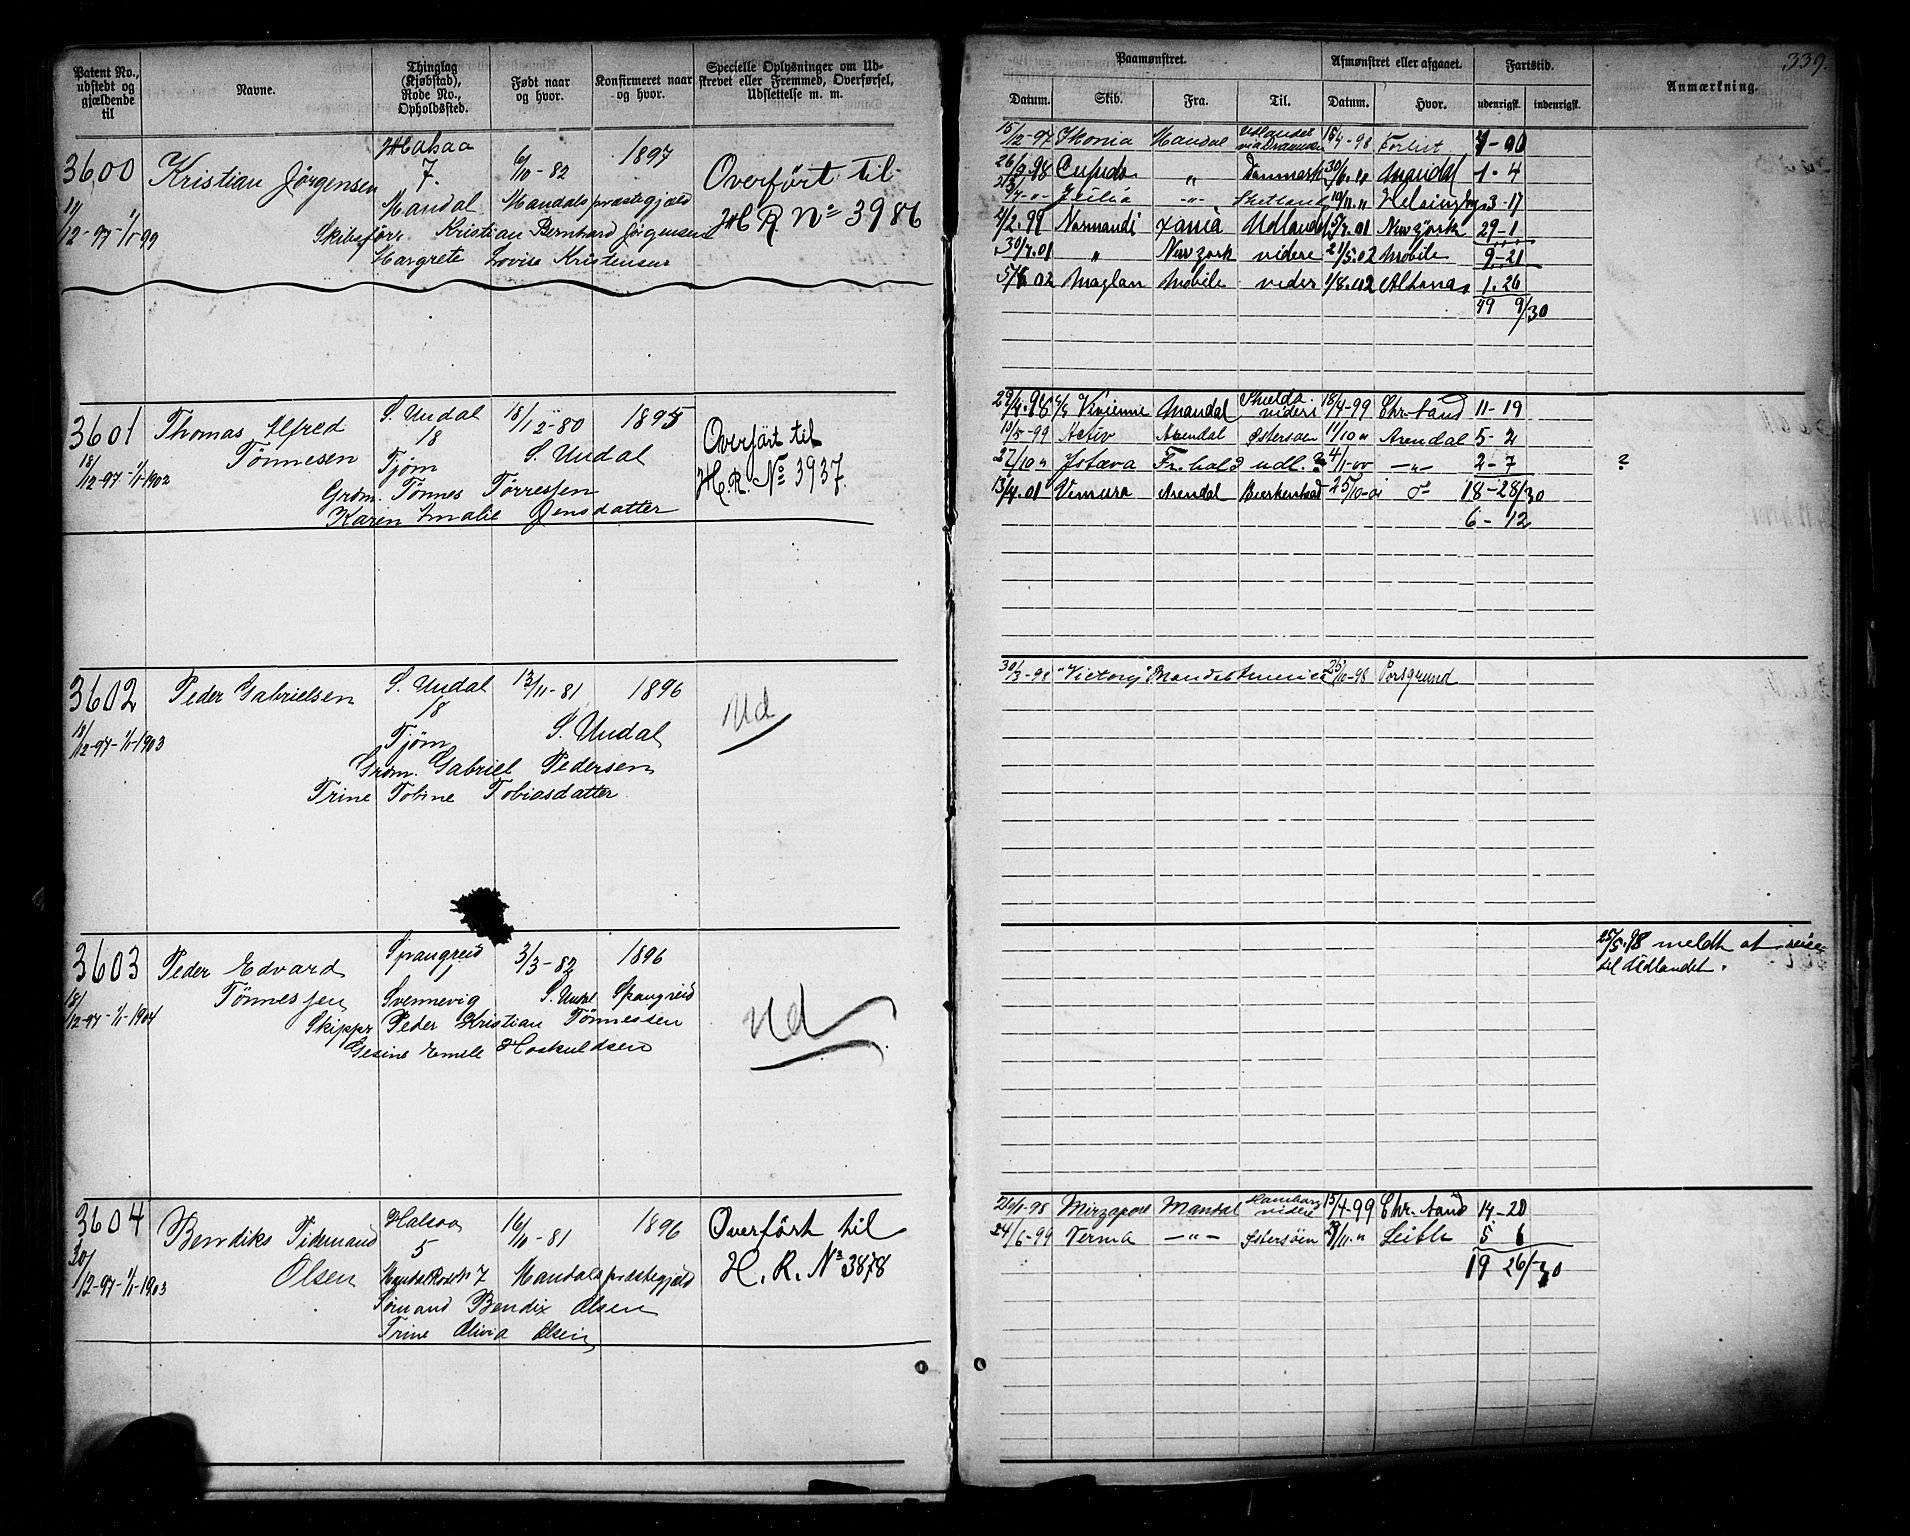 339.
Patent No., udstedt og gjældende til
Navne.
Thinglag (Kjøbstad), Rode No., Opholdssted.
Født naar og hvor.
Konfirmeret naar og hvor.
Specielle Oplysninger om Udskrevet eller Fremmed, Overførsel, Udslettelse m. m.
Paamønstret.
Afmønstret eller afgaaet.
Fartstid.
Anmærkning.
Datum. Skib. Fra. Til. Datum. Hvor. udenrigsk. indenrigsk.
3600 Kristian Jörgensen
Halsaa
7.
6/10-82 1897
Overført til
H R No 3986
11/12-97-1/1-99
Mandal Mandals præstegjæld
Skibsförer Kristian Bernhard Jörgensen
Margrete Lovise Kristensen
15/12-97 Ikonia Mandal Udlandet via Drammen 15/4-98 Forlist
26/5.98 Cupido " Danmark 30/6." Mandal 1-4
Shetland 19/11." 3-17
2/2.99 Normandi Udlandet 5/7.01 Newyork 29-1
30/7.01 " Newyork videre 21/5.02 Mobile 9-21
5/6 02 Maglan Mobile vider 1/8.02 Altona 1.26
49 9/30
3601 Thomas Alfred
Tönnesen
S. Undal
18
18/12-80 1895
S. Undal
Overført til
H.R. No 3937
18/12-97-1/1-1902
Tjöm
Grdm. Tönnes Törressen
Karen Amalie Jensdatter
29/4.98 Vivienne Mandal videre 18/4-99 Chr.sand 11-19
10/5-99 Activ Arendal Østersøen 11/10 " Arendal 5-2
27/10 " Fr.hald udl. 4/1-00 -"- 2-7
?
13/4.01 Arendal 25/10-01 do 18-28/30
6-12
3602 Peder Gabrielsen
S. Undal
18
13/11-81 1896
Ud
18/12-97-1/1-1903
Tjöm S. Undal
Grdm. Gabriel Pedersen
Trine Tobine Tobiasdatter
30/3-98 "Victory" Mandal Amerika 25/10-98 Porsgrund
3603 Peder Edvard
Tönnessen
Spangreid
1
3/3-82 1896
Ud
18/12-97-1/1-1904
Svennevig S. Undal Spangreid
Skippr Peder Kristian Tönnessen
Gesine Emelie Hoskuldsen
25/5.98 meldt at reise
til Udlandet.
3604 Bendiks Tidemand
Olsen
Halsaa
5
16/10-81 1896
Overført til
H. R. No 3878
30/12-97-1/1-1903
Mandals præstegjæld
Bendix Olsen
Trine Olivia Olsen
20/1-98 Mirzapore Mandal Hamburg videre 15/4-99 Chr.sand 14-20
24/6-99 Verma -"- Østersöen Leith 5 6
19 26/30